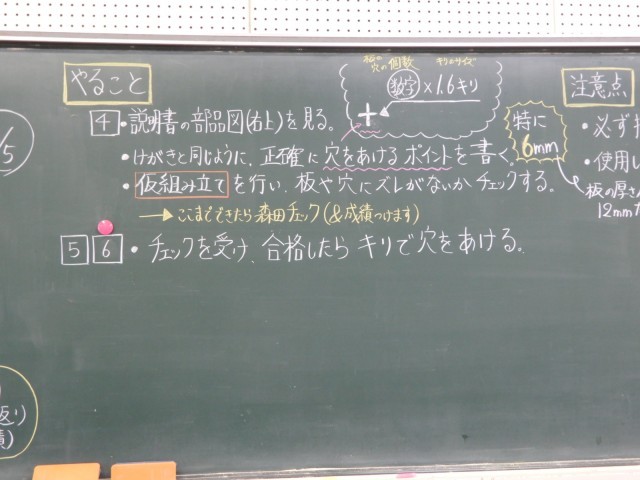 やること
板の穴の個数
キリのサイズ
数字×1.6キリ
+
注意点
4・説明書の部品図(右上)を見る。
・けがきと同じように、正確に穴をあけるポイントを書く。
・仮組み立てを行い、板や穴にズレがないかチェックする。
→ここまでできたら森田チェック(&成績つけます)
5 6・チェックを受け、合格したらキリで穴をあける。
特に
6mm
・必ず
・使用し
板の厚さ
12mm
/5
返り